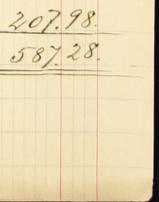 207.98.
587.28.